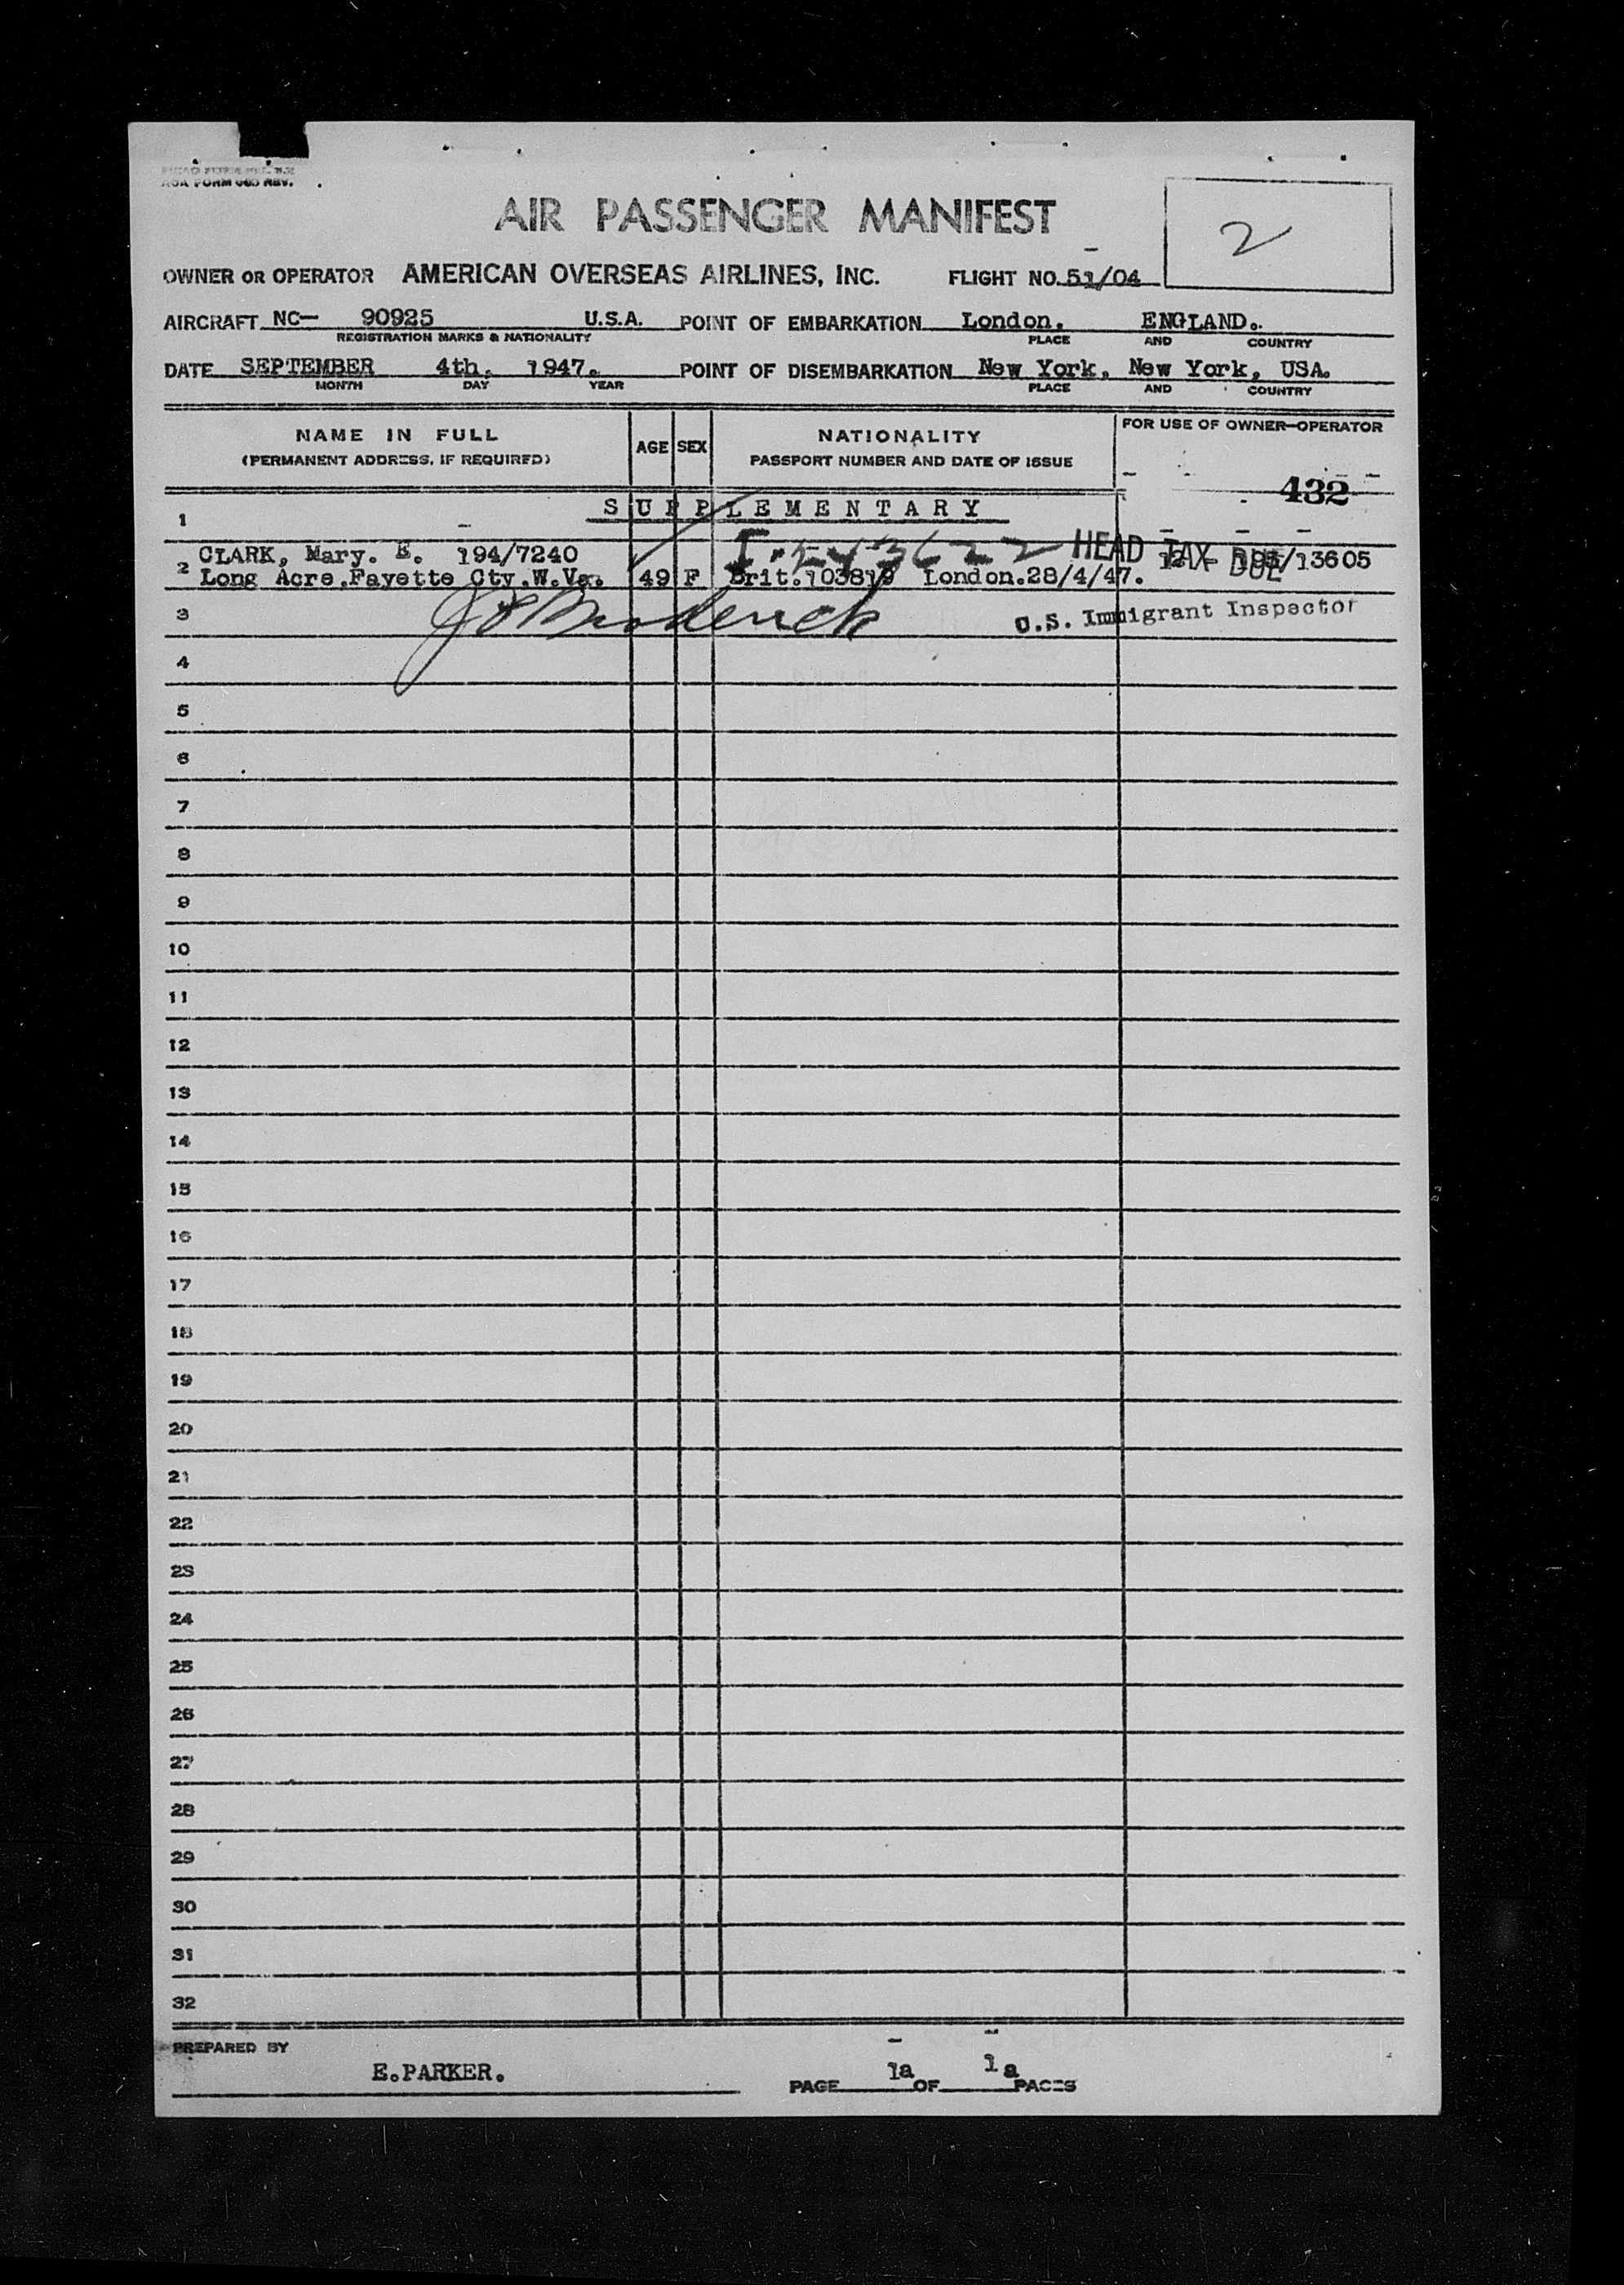 AOA FORM 063 REV.
AIR PASSENGER MANIFEST
2
OWNER OR OPERATOR AMERICAN OVERSEAS AIRLINES, INC. FLIGHT NO. 51/04
AIRCRAFT NC— 90925 U.S.A. POINT OF EMBARKATION London. ENGLAND.
REGISTRATION MARKS & NATIONALITY PLACE AND COUNTRY
DATE SEPTEMBER 4th. 1947. POINT OF DISEMBARKATION New York, New York, USA.
MONTH DAY YEAR PLACE AND COUNTRY
NAME IN FULL
(PERMANENT ADDRESS, IF REQUIRED)
AGE SEX
NATIONALITY
PASSPORT NUMBER AND DATE OF ISSUE
FOR USE OF OWNER-OPERATOR
432
1 SUPPLEMENTARY
CLARK, Mary. E. 194/7240 HEAD TAX DUE /13605
2 Long Acre.Fayette Cty.W.Va. 49 F Brit.103819 London.28/4/47.
3 U.S. Immigrant Inspector
4
5
6
7
8
9
10
11
12
13
14
15
16
17
18
19
20
21
22
23
24
25
26
27
28
29
30
31
32
PREPARED BY
E.PARKER.
PAGE 1a OF 1a PAGES